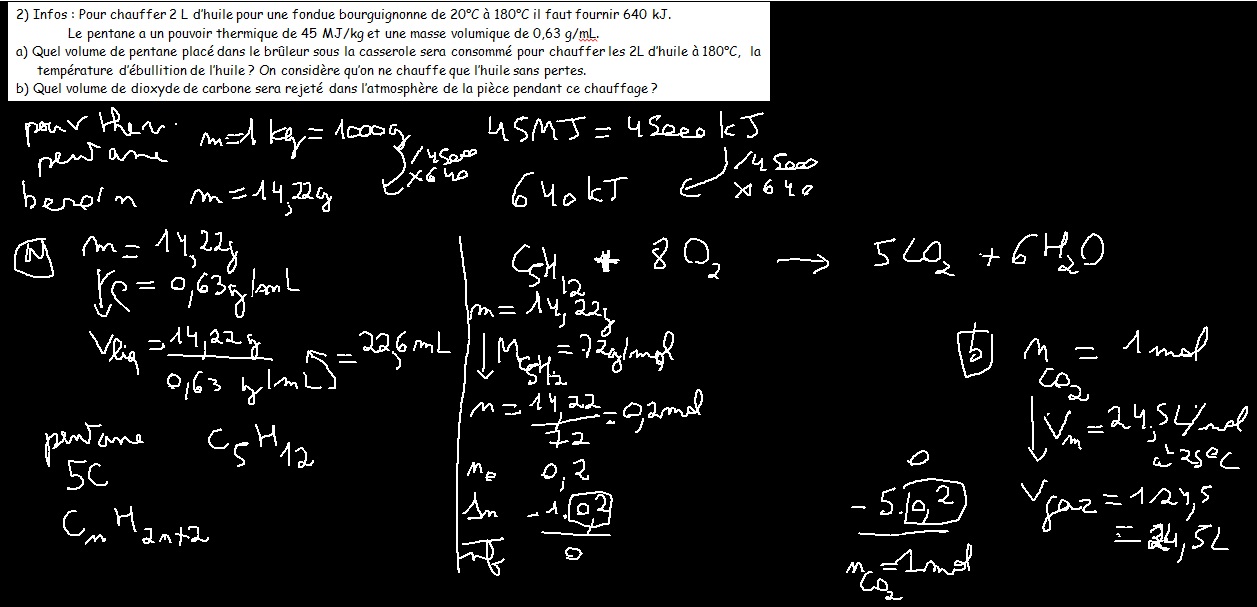 2) Infos : Pour chauffer 2 L d'huile pour une fondue bourguignonne de 20°C à 180°C il faut fournir 640 kJ.
Le pentane a un pouvoir thermique de 45 MJ/kg et une masse volumique de 0,63 g/mL.
a) Quel volume de pentane placé dans le brûleur sous la casserole sera consommé pour chauffer les 2L d'huile à 180°C, la
température d'ébullition de l'huile ? On considère qu'on ne chauffe que l'huile sans pertes.
b) Quel volume de dioxyde de carbone sera rejeté dans l'atmosphère de la pièce pendant ce chauffage ?
pouv ther. m=1 kg=1000g 45MJ = 45000 kJ
pentane /45000 /45000
x640 x640
besoin m=14,22g 640kJ
m= 14,22g
ρ = 0,63g/mL
Vliq = 14,22 g / 0,63 g/mL = 22,6 mL
pentane C5H12
5C
CnH2n+2
C5H12 + 8 O2 → 5 CO2 + 6 H2O
m= 14,22g
MC5H12 = 72g/mol
n = 14,22 / 72 = 0,2mol
0,2 0
Δn -1.0,2 - 5.0,2
nf 0 nCO2=1mol
b) nCO2 = 1mol
Vm = 24,5L/mol
à 25°C
Vgaz = 1.24,5
= 24,5L